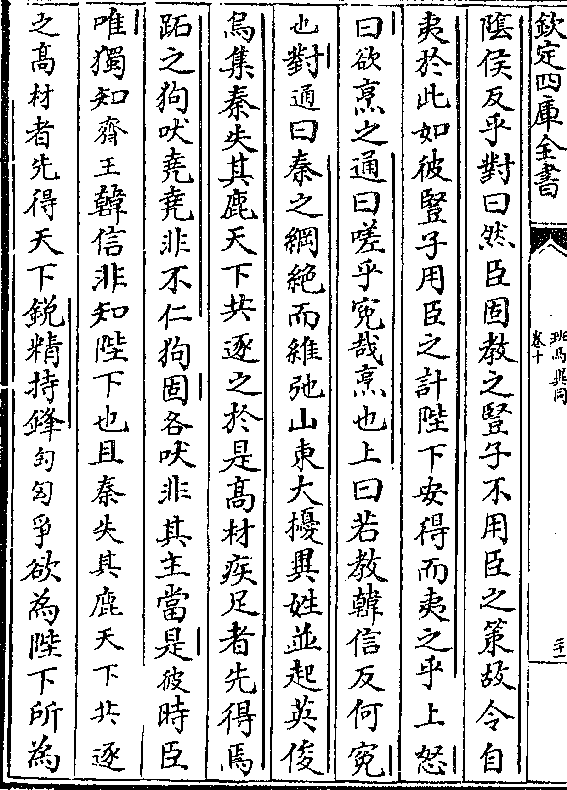 欽定四庫全書
班馬異同
卷十
二十
隂侯反乎對曰然臣固教之豎子不用臣之策故令自
夷於此如彼豎子用臣之計陛下安得而夷之乎上怒
曰欲烹之通曰嗟乎寃哉烹也上曰若教韓信反何寃
也對通曰秦之綱絶而維弛山東大擾異姓並起英俊
烏集秦失其鹿天下共逐之於是髙材疾足者先得焉
跖之狗吠堯堯非不仁狗固各吠非其主當是彼時臣
唯獨知齊王韓信非知陛下也且秦失其鹿天下共逐
之髙材者先得天下鋭精持鋒匈匈爭欲為陛下所為